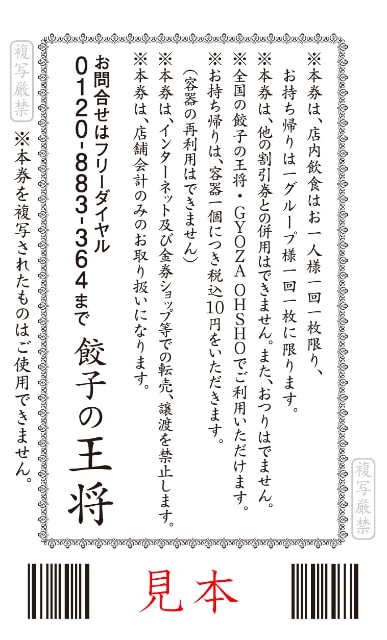 ※本券は、店内飲食はお一人様一回一枚限り、
お持ち帰りは一グループ様一回一枚に限ります。
※本券は、他の割引券との併用はできません。また、おつりはでません。
※全国の餃子の王将・GYOZA OHSHOでご利用いただけます。
※お持ち帰りは、容器一個につき税込10円をいただきます。
(容器の再利用はできません)
※本券は、インターネット及び金券ショップ等での転売、譲渡を禁止します。
※本券は、店舗会計のみのお取り扱いになります。
お問合せはフリーダイヤル
0120-883-364まで
餃子の王将
※本券を複写されたものはご使用できません。
複写厳禁
複写厳禁
見本